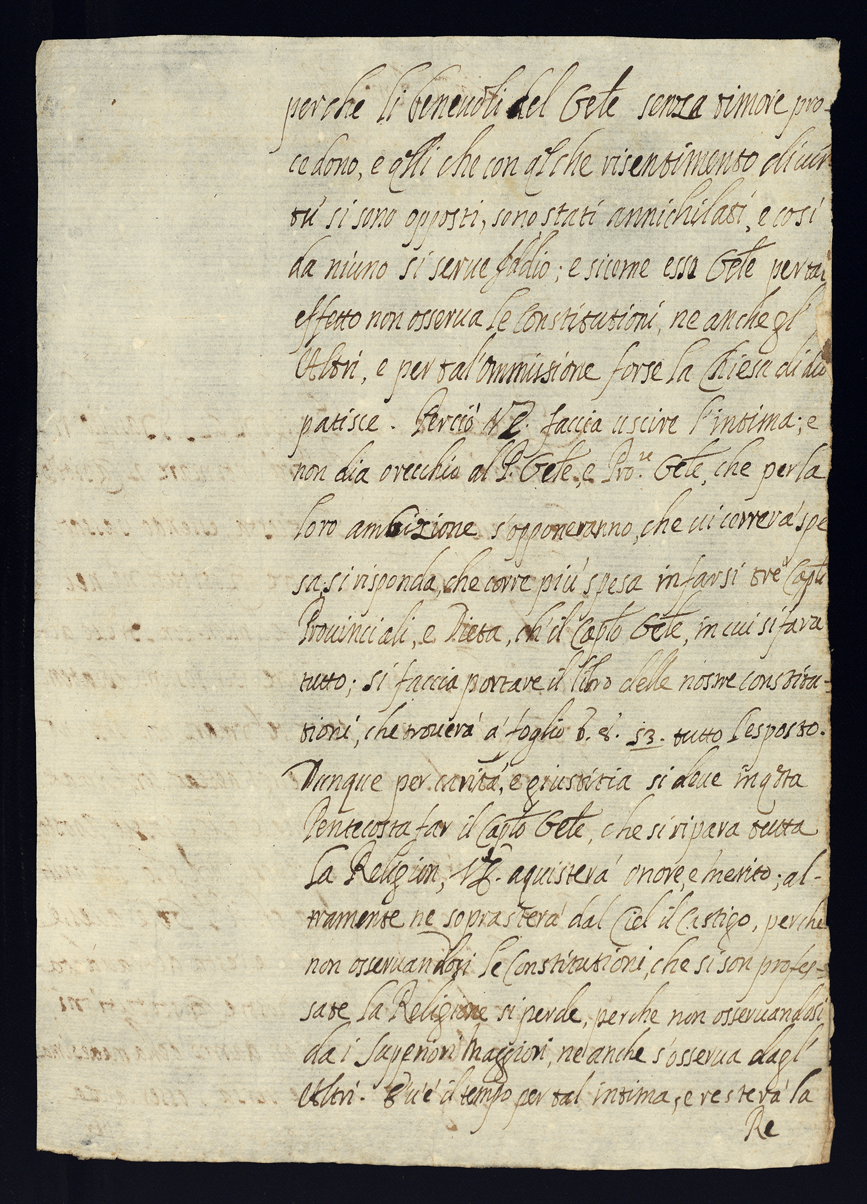 perche li beneuoli del Gẽle senza timore pro-
cedono, e q̃lli che con q̃lche risentimento di uir-
tù si sono opposti, sono stati annichilati, e così
da niuno si serue Iddio; e sicome esso Gẽle per tal
effetto non osserua le Constitutioni, ne anche gl'
Altri, e per tal'ommissione forse la Chiesa di dio
patisce. Perciò VE. faccia uscire l'intima; e
non dia orecchio al P. Gẽle, e Pro.re Gẽle, che per la
loro ambizione s'opponeranno, che ui correrà spe
sa, si risponda, che corre più spesa in farsi tre Cap̃li
Prouinciali, e Dieta, ch'il Cap̃lo Gẽle, in cui si farà
tutto; si faccia portare il libro delle nostre constitu-
tioni, che trouerà à foglio 6. 8. 53. tutto l'esposto.
Dunque per carità, e giustitia si deue in q̃sta
Pentecoste far il Cap̃lo Gẽle, che si ripara tutta
la Religion, VE. aquisterà onore, e merito; al-
tramente ne soprasterà dal Ciel il Castigo, perche
non osseruandosi le Constitutioni, che si son profes-
sate la Religione si perde, perche non osseruandosi
da i Superiori Maggiori, ne anche s'osserua dagl'
Altri. Qu'è il tempo per tal intima, e resterà la
Re